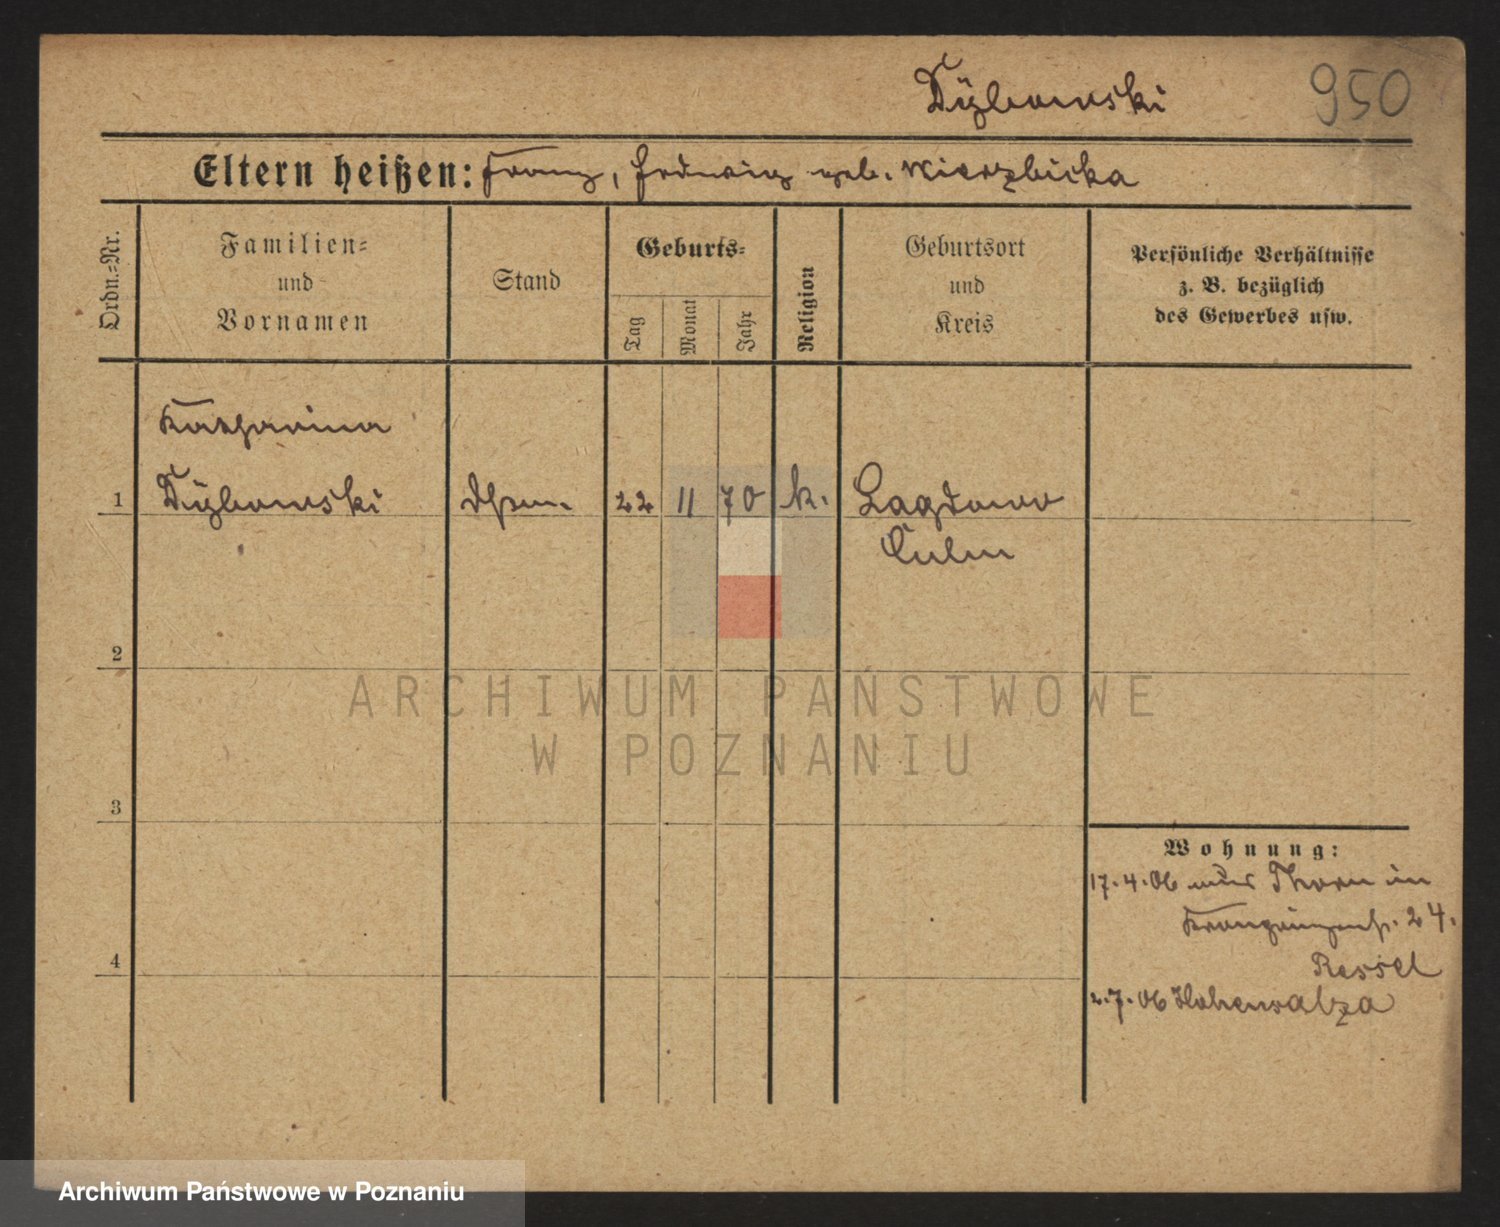 Dÿbowski 950
Eltern heißen: Franz, Hedwig geb. Wierzbicka
Ordn.-Nr.
Familien-
und
Vornamen
Stand
Geburts-
Tag
Monat
Jahr
Religion
Geburtsort
und
Kreis
Persönliche Verhältnisse
z. B. bezüglich
des Gewerbes usw.
Katharina
1 Dÿbowski 22 11 70 k.
Culm
2
ARCHIWUM PAŃSTWOWE
W POZNANIU
3
Wohnung:
17.4.06 aus Thorn in
24.
4 Ressel
2.7.06 Hohensalza
Archiwum Państwowe w Poznaniu